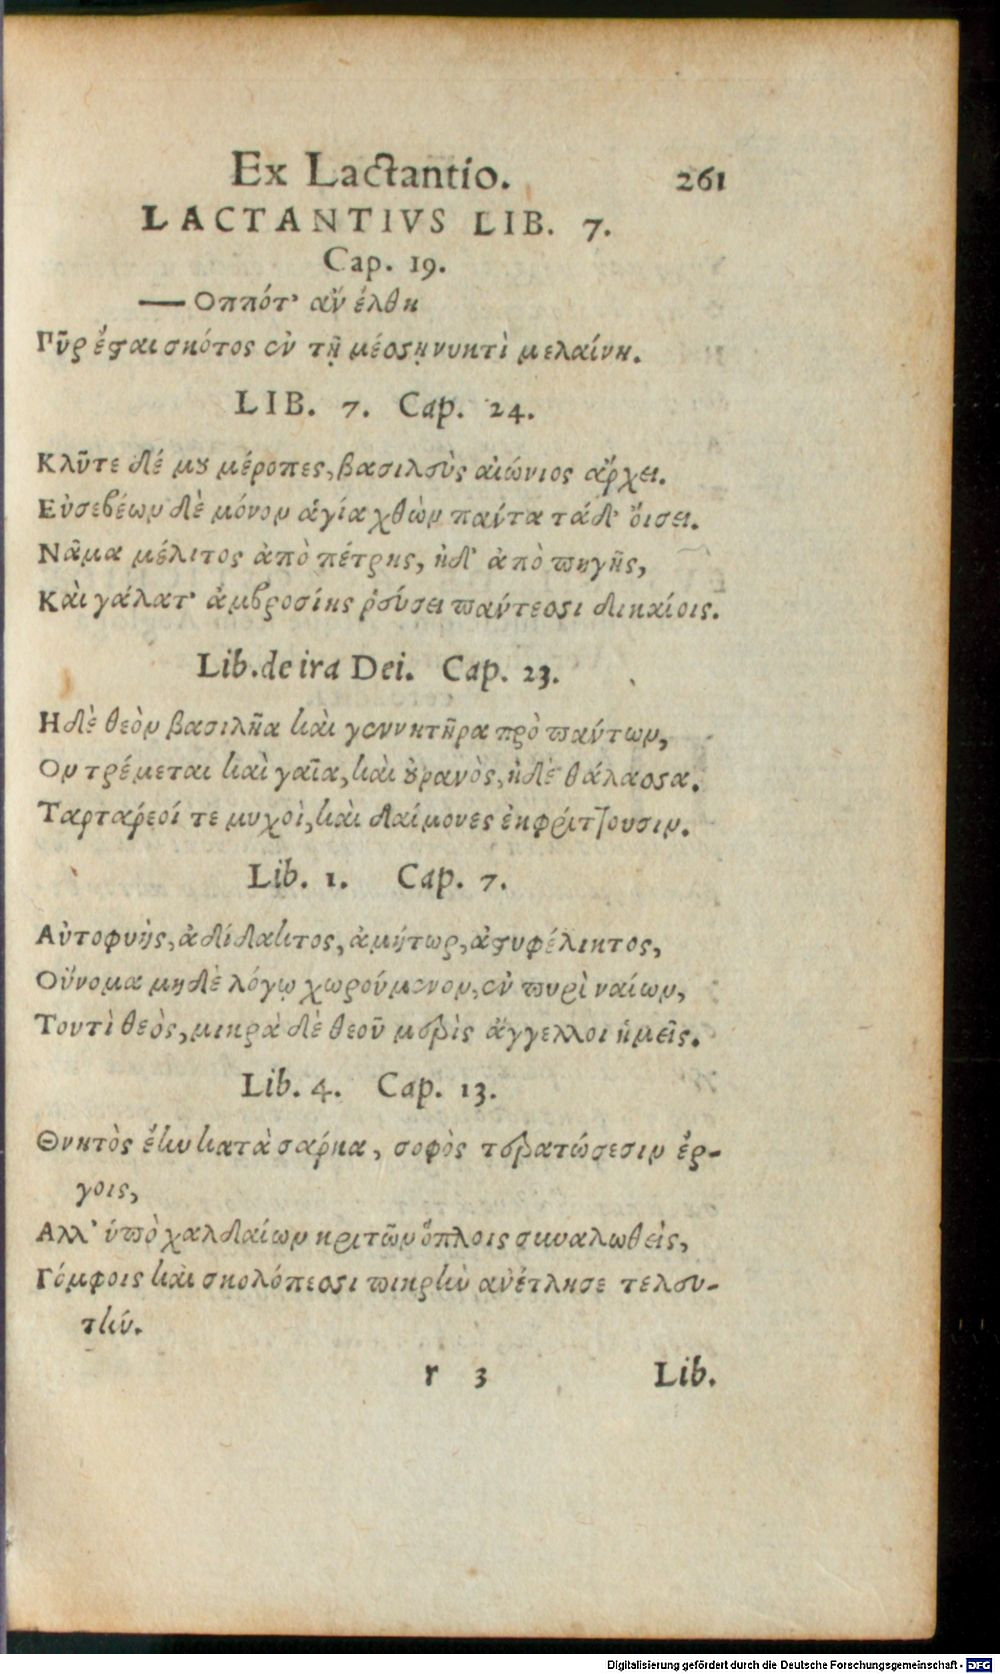 Ex Lactantio. 261
LACTANTIVS LIB. 7.
Cap. 19.
— Οππότ' ἂν ἔλθη
Πῦρ ἔϛαι σκότος ἐν τῇ μέσσῃ νυκτὶ μελαίνη.
LIB. 7. Cap. 24.
Κλῦτε δέ μȣ μέροπες, βασιλεὺς αἰώνιος ἄρχει.
Εὐσεβέων δὲ μόνον ἁγία χθὼν πάντα τάδ' ὄισει.
Νᾶμα μέλιτος ἀπὸ πέτρης, ἠδ' ἀπὸ πηγῆς,
Καὶ γάλατ' ἀμβροσίης ῥεύσει πάντεσσι δικαίοις.
Lib. de ira Dei. Cap. 23.
Η δὲ θεὸν βασιλῆα καὶ γεννητῆρα πρὸ πάντων,
Ον τρέμεται καὶ γαῖα, καὶ ȣρανὸς, ἠδὲ θάλασσα.
Ταρταρέοί τε μυχοὶ, καὶ δαίμονες ἐκφρίττουσιν.
Lib. 1. Cap. 7.
Αὐτοφυὴς, ἀδίδακτος, ἀμήτωρ, ἀϛυφέλικτος,
Οὔνομα μηδὲ λόγῳ χωρούμενον, ἐν πυρὶ ναίων,
Τουτὶ θεὸς, μικρὰ δὲ θεοῦ μερὶς ἄγγελλοι ἡμεῖς.
Lib. 4. Cap. 13.
Θνητὸς ἔην κατὰ σάρκα, σοφὸς τερατώσεσιν ἔρ-
γοις,
Αλλ' ὑπὸ χαλδαίων κριτῶν ὅπλοις συναλωθεὶς,
Γόμφοις καὶ σκολόπεσσι πικρὴν ἀνέτλησε τελευ-
τήν.
r 3 Lib.
Digitalisierung gefördert durch die Deutsche Forschungsgemeinschaft - DFG